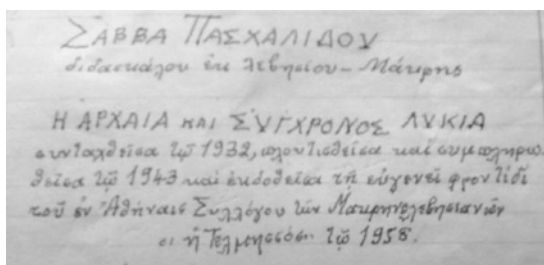 ΣΑΒΒΑ ΠΑΣΧΑΛΙΔΟΥ
διδασκάλου ἐκ Λεβησίου - Μάκρης
Η ΑΡΧΑΙΑ ΚΑΙ ΣΥΓΧΡΟΝΟΣ ΛΥΚΙΑ
συνταχθεῖσα τῷ 1932, πλουτισθεῖσα καὶ συμπληρω
θεῖσα τῷ 1943 καὶ ἐκδοθεῖσα τῇ εὐγενεῖ φροντίδι
τοῦ ἐν Ἀθήναις Συλλόγου τῶν Μακρηνολεβησιανῶν
ἡ Τελμησσός τῷ 1958.